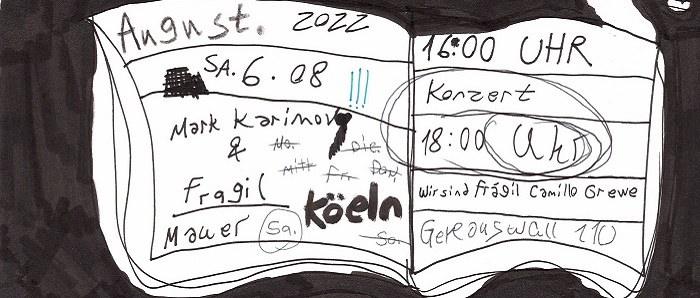 August. 2022
SA. 6.08 !!!
Mark Karimov
&
Fragil
Mauer
Mo. Die.
Mitt Fr. Don
Sa.
So.
KöELN
16:00 UHR
Konzert
18:00 Uhr
Wir sind Frágil Camillo Grewe
110